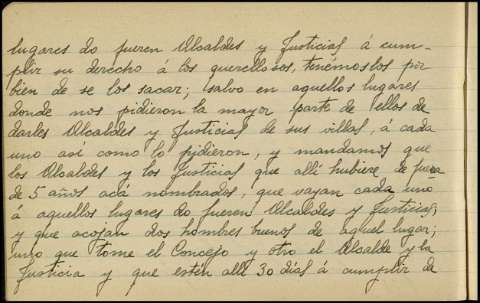 lugares do fueren Alcaldes y Justicias á cum-
plir su derecho á los querellosos, tenémoslos por
bien de se los sacar; salvo en aquellos lugares
donde nos pidieron la mayor parte de ellos de
darles Alcaldes y Justicias de sus villas, á cada
uno asi como lo pidieron, y mandamos que
los Alcaldes y las Justicias que allí hubiere de fuera
de 5 años acá nombrados, que vayan cada uno
á aquellos lugares do fueren Alcaldes y Justicias,
y que acojan dos hombres buenos de aquel lugar;
uno que tome el Concejo y otro el Alcalde y la
Justicia y que estén allí 30 dias á cumplir de